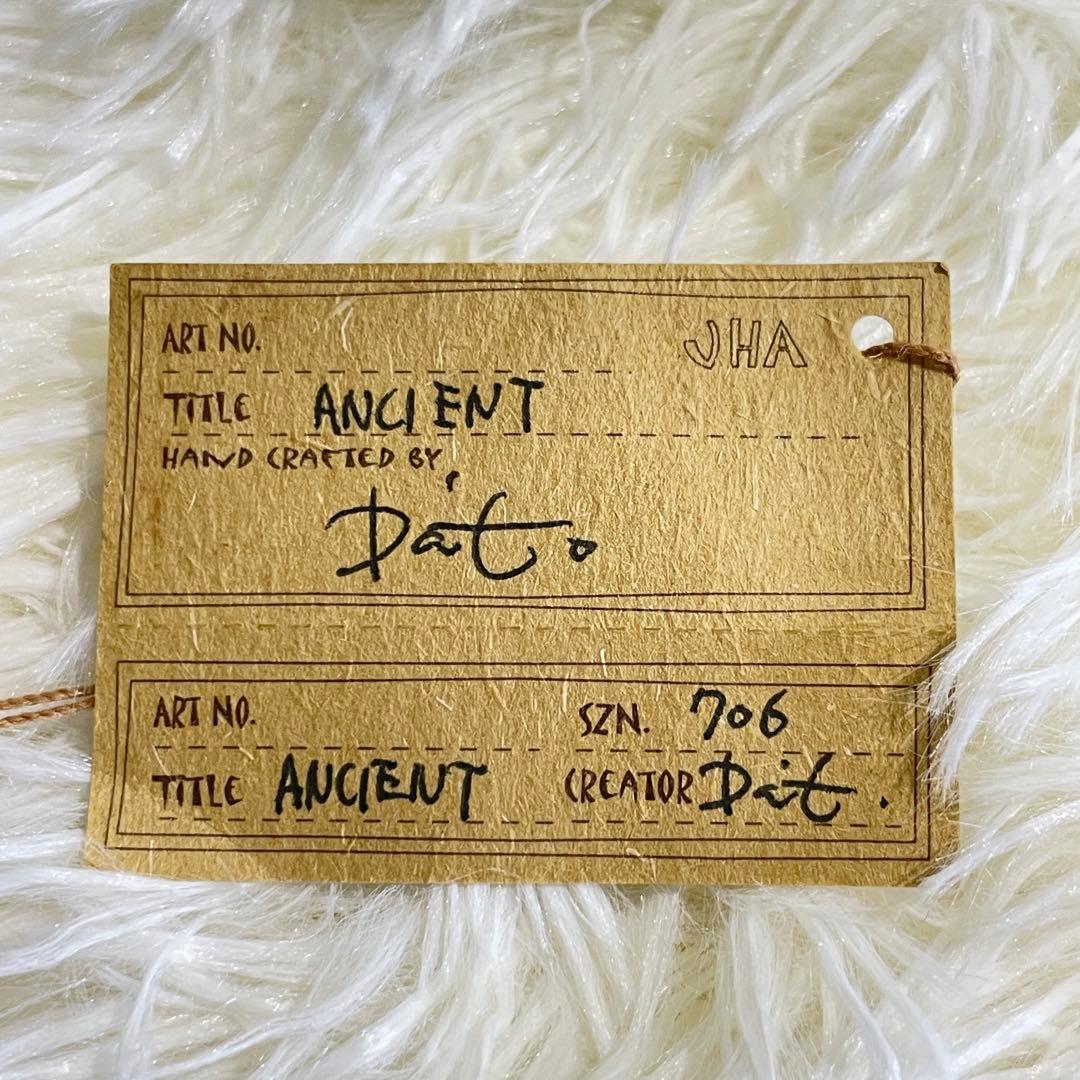 ART NO. JHA
TITLE ANCIENT
HAND CRAFTED BY
Dat.
ART NO. SZN. 706
TITLE ANCIENT CREATOR Dat.